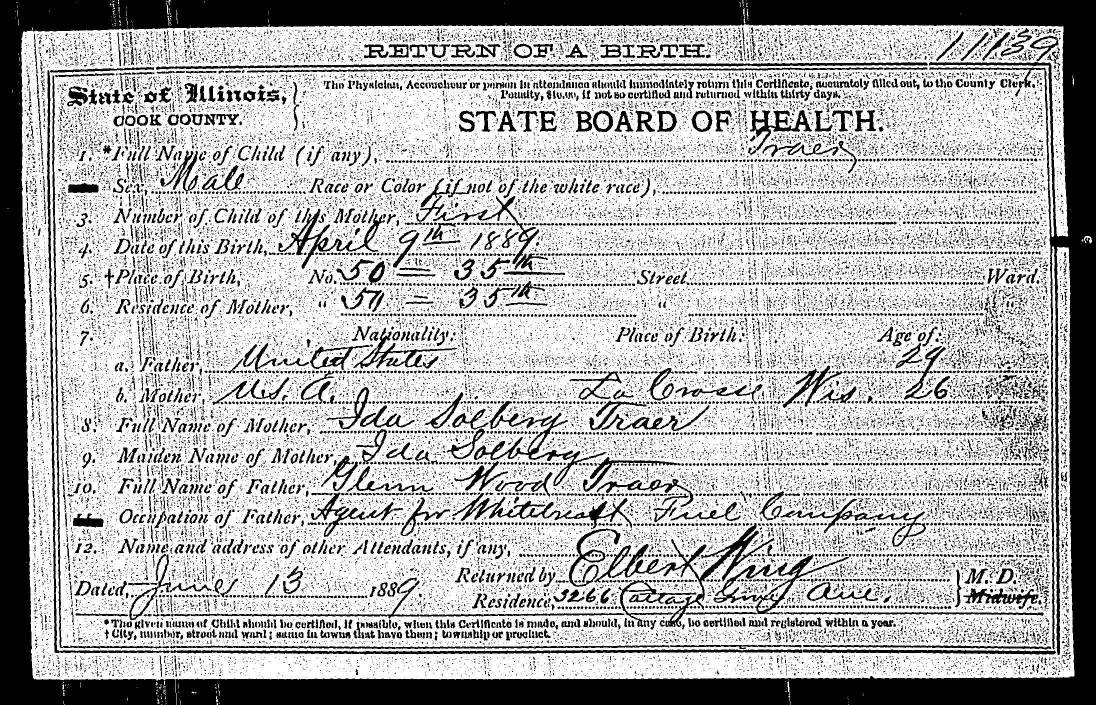 RETURN OF A BIRTH.
11139
State of Illinois,
COOK COUNTY.
The Physician, Accoucheur or person in attendance should immediately return this Certificate, accurately filled out, to the County Clerk.
Penalty, $10.00, if not so certified and returned within thirty days.
STATE BOARD OF HEALTH.
1. *Full Name of Child (if any), Traer
Sex, Male Race or Color (if not of the white race),
3. Number of Child of this Mother, First
4. Date of this Birth, April 9th 1889.
5. †Place of Birth, No. 50 = 35th Street Ward.
6. Residence of Mother, " 50 = 35th " "
7. Nationality: Place of Birth: Age of:
a. Father, United States 29
b. Mother, U.S. A. La Crosse Wis. 26
8. Full Name of Mother, Ida Solberg Traer
9. Maiden Name of Mother, Ida Solberg
10. Full Name of Father, Glenn Wood Traer
11. Occupation of Father, Agent for Whitebreast Fuel Company
12. Name and address of other Attendants, if any,
Returned by Elbert Wing M. D.
Dated, June 13 1889
Residence, 3266 Cottage Grove Ave. Midwife.
*The given name of Child should be certified, if possible, when this Certificate is made, and should, in any case, be certified and registered within a year.
† City, number, street and ward; same in towns that have them; township or precinct.